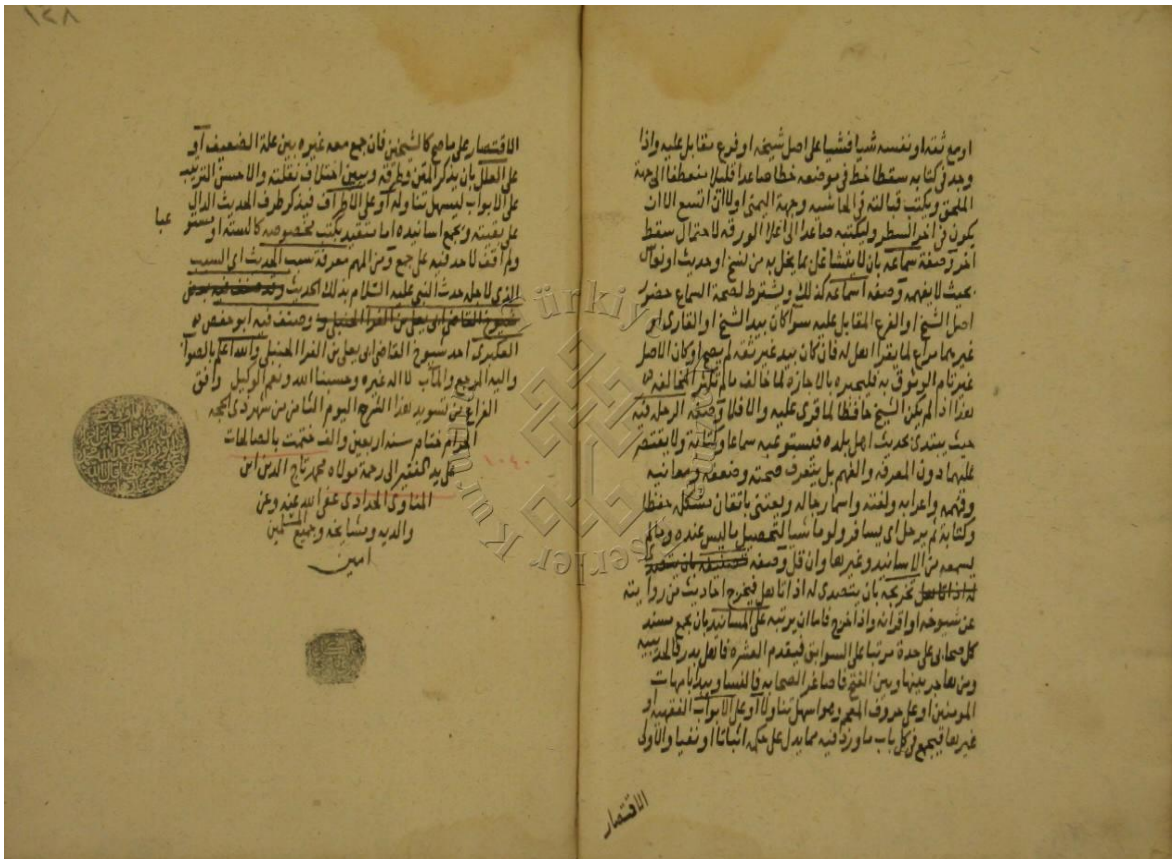 او مع ثقة او نفسه شيا فشيا على اصل شيخه او فرع مقابل عليه واذا
وجد فى كتابه سقطا خط فى موضعه خطا صاعدا قليلا منعطفا الى جهة
الملحق ويكتب قبالته فى الحاشيه وجهة اليمنى اولا ان اتسع الا ان
يكون فى اخر السطر وليكتبه صاعدا الى اعلا الورقه لاحتمال سقط
اخر وصفة سماعه بان لا يتشاغل بما يخل به من نسخ او حديث او نعاس
بحيث لا يفهمه وصفة اسماعه كذلك ويشترط لصحة السماع حضور
اصل الشيخ او الفرع المقابل عليه سوآ كان بيد الشيخ او القارى او
غيرهما مراع لما يقرا اهل له فان كان بيد غير ثقة لم يصح وكان الاصل
غير تام الوثوق به فليجبره بالاجازه لما خالف مالم تكثر المخالفه
هذا اذا لم يكن الشيخ حافظا لما قرى عليه والا فلا وصفة الرحلة فيه
حيث يبتدى بحديث اهل بلده فيستوعبه سماعا وكتابة ولا يقتصر
عليهما دون المعرفه والفهم بل يتعرف صحته وضعفه ومعانيه
وفقهه واعرابه ولغته واسما رجاله ويعتنى باتقان مشكله حفظا
وكتابة ثم يرحل اى يسافر ولو ماشيا لتحصيل ما ليس عنده وما لم
يسمعه من الاسانيد وغيرها وان قل وصفة
تخريجه بان يتصدى له اذا تاهل فيخرج احاديث من روايته
عن شيوخه او اقرانه واذا خرج فاما ان يرتبه على المسانيد بان يجمع مسند
كل صحابى على حدة مرتبا على السوابق فيقدم العشره فاهل بدر فالحديبيه
ومن هاجر بينها وبين الفتح فاصاغر الصحابه فالنسا ويبدا بامهات
المومنين او على حروف المعجم وهو اسهل تناولا او على الابواب الفقهيه او
غيرها فيجمع فى كل باب ما ورد فيه مما يدل على حكمه اثباتا او نفيا والاولى
الاقتصار
١٢٨
الاقتصار على ما صح كالشيخين فان جمع معه غيره بين علة الضعيف او
على العلل بان يذكر المتن وطرقه ويبين اختلاف نقلته والاحسن الترتيب
على الابواب ليسهل تناوله او على الاطراف فيذكر طرف الحديث الدال
على بقيته ويجمع اسانيده اما متقيد بكتب مخصوصه كالسته او مستو
عبا
ولم اقف لاحد فيه على جمع ومن المهم معرفة سبب الحديث اى السبب
الذى لاجله حدث النبى عليه السلام بذلك الحديث وقد صنف فيه بعض
شيوخ القاضى ابى يعلى بن الفرا الحنبلى و وصنف فيه ابو حفص
العكبرى احد شيوخ القاضى ابى يعلى بن الفرا الحنبلى والله اعلم بالصواب
واليه المرجع والمآب لا اله غيره وحسبنا الله ونعم الوكيل وافق
الفراغ من تسويد هذا الشرح اليوم الثامن من شهر ذى الحجه
الحرام ختام سنه اربعين والف ختمت بالصالحات
١٠٤٠
على يد الفقير الى رحمة مولاه محمد تاج الدين ابن
المناوى الحدادى عفى الله عنه وعن
والديه ومشايخه وجميع المسلمين
امين